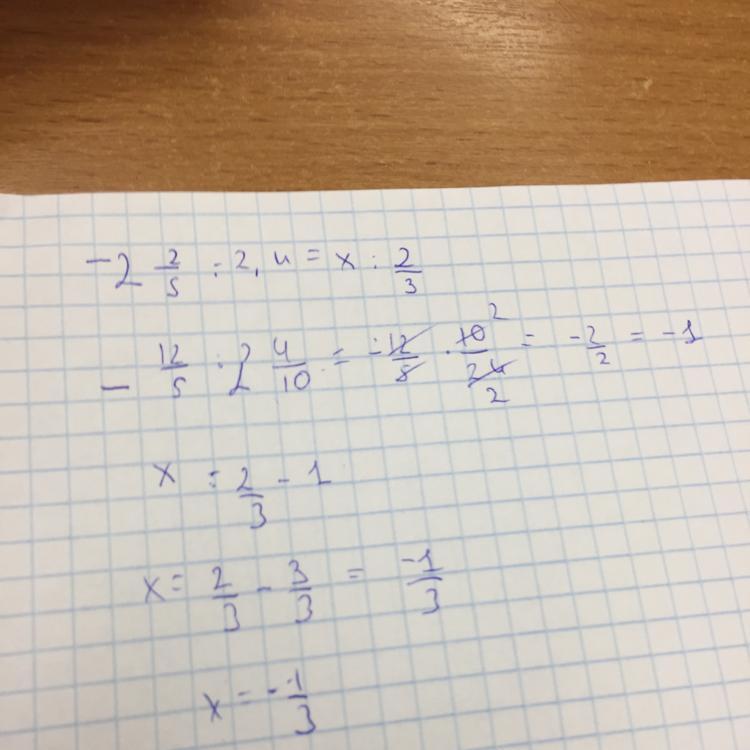 -2 2/5 : 2,4 = x : 2/3
- 12/5 : 2 4/10 = -12/5 · 10/24 2 2 = -2/2 = -1
x : 2/3 - 1
x = 2/3 - 3/3 = -1/3
x = -1/3